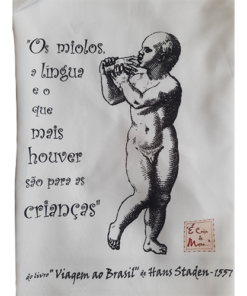 "Os miolos,
a língua
e o
que
mais
houver
são para as
crianças"
do livro "Viagem ao Brasil" de Hans Staden - 1557